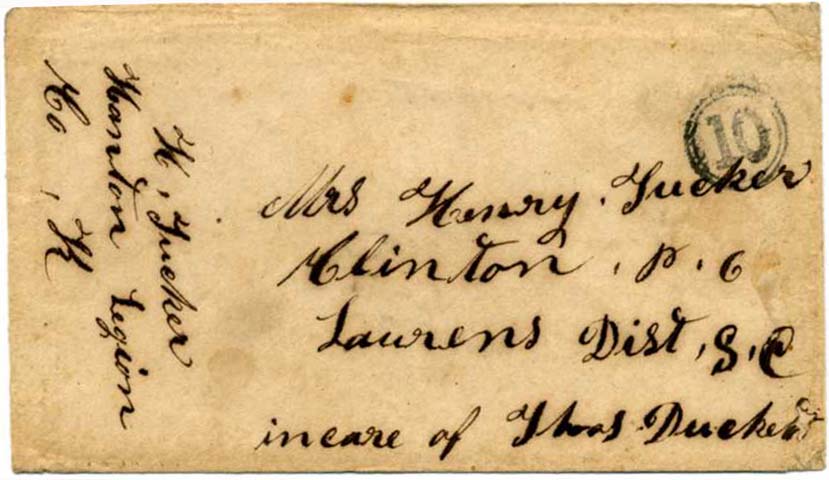 H, Tucker
Hamton Legion
Co, K
10
Mrs Henry. Tucker
Clinton, P. C
Laurens Dist, S, C
in care of Thos Duckett